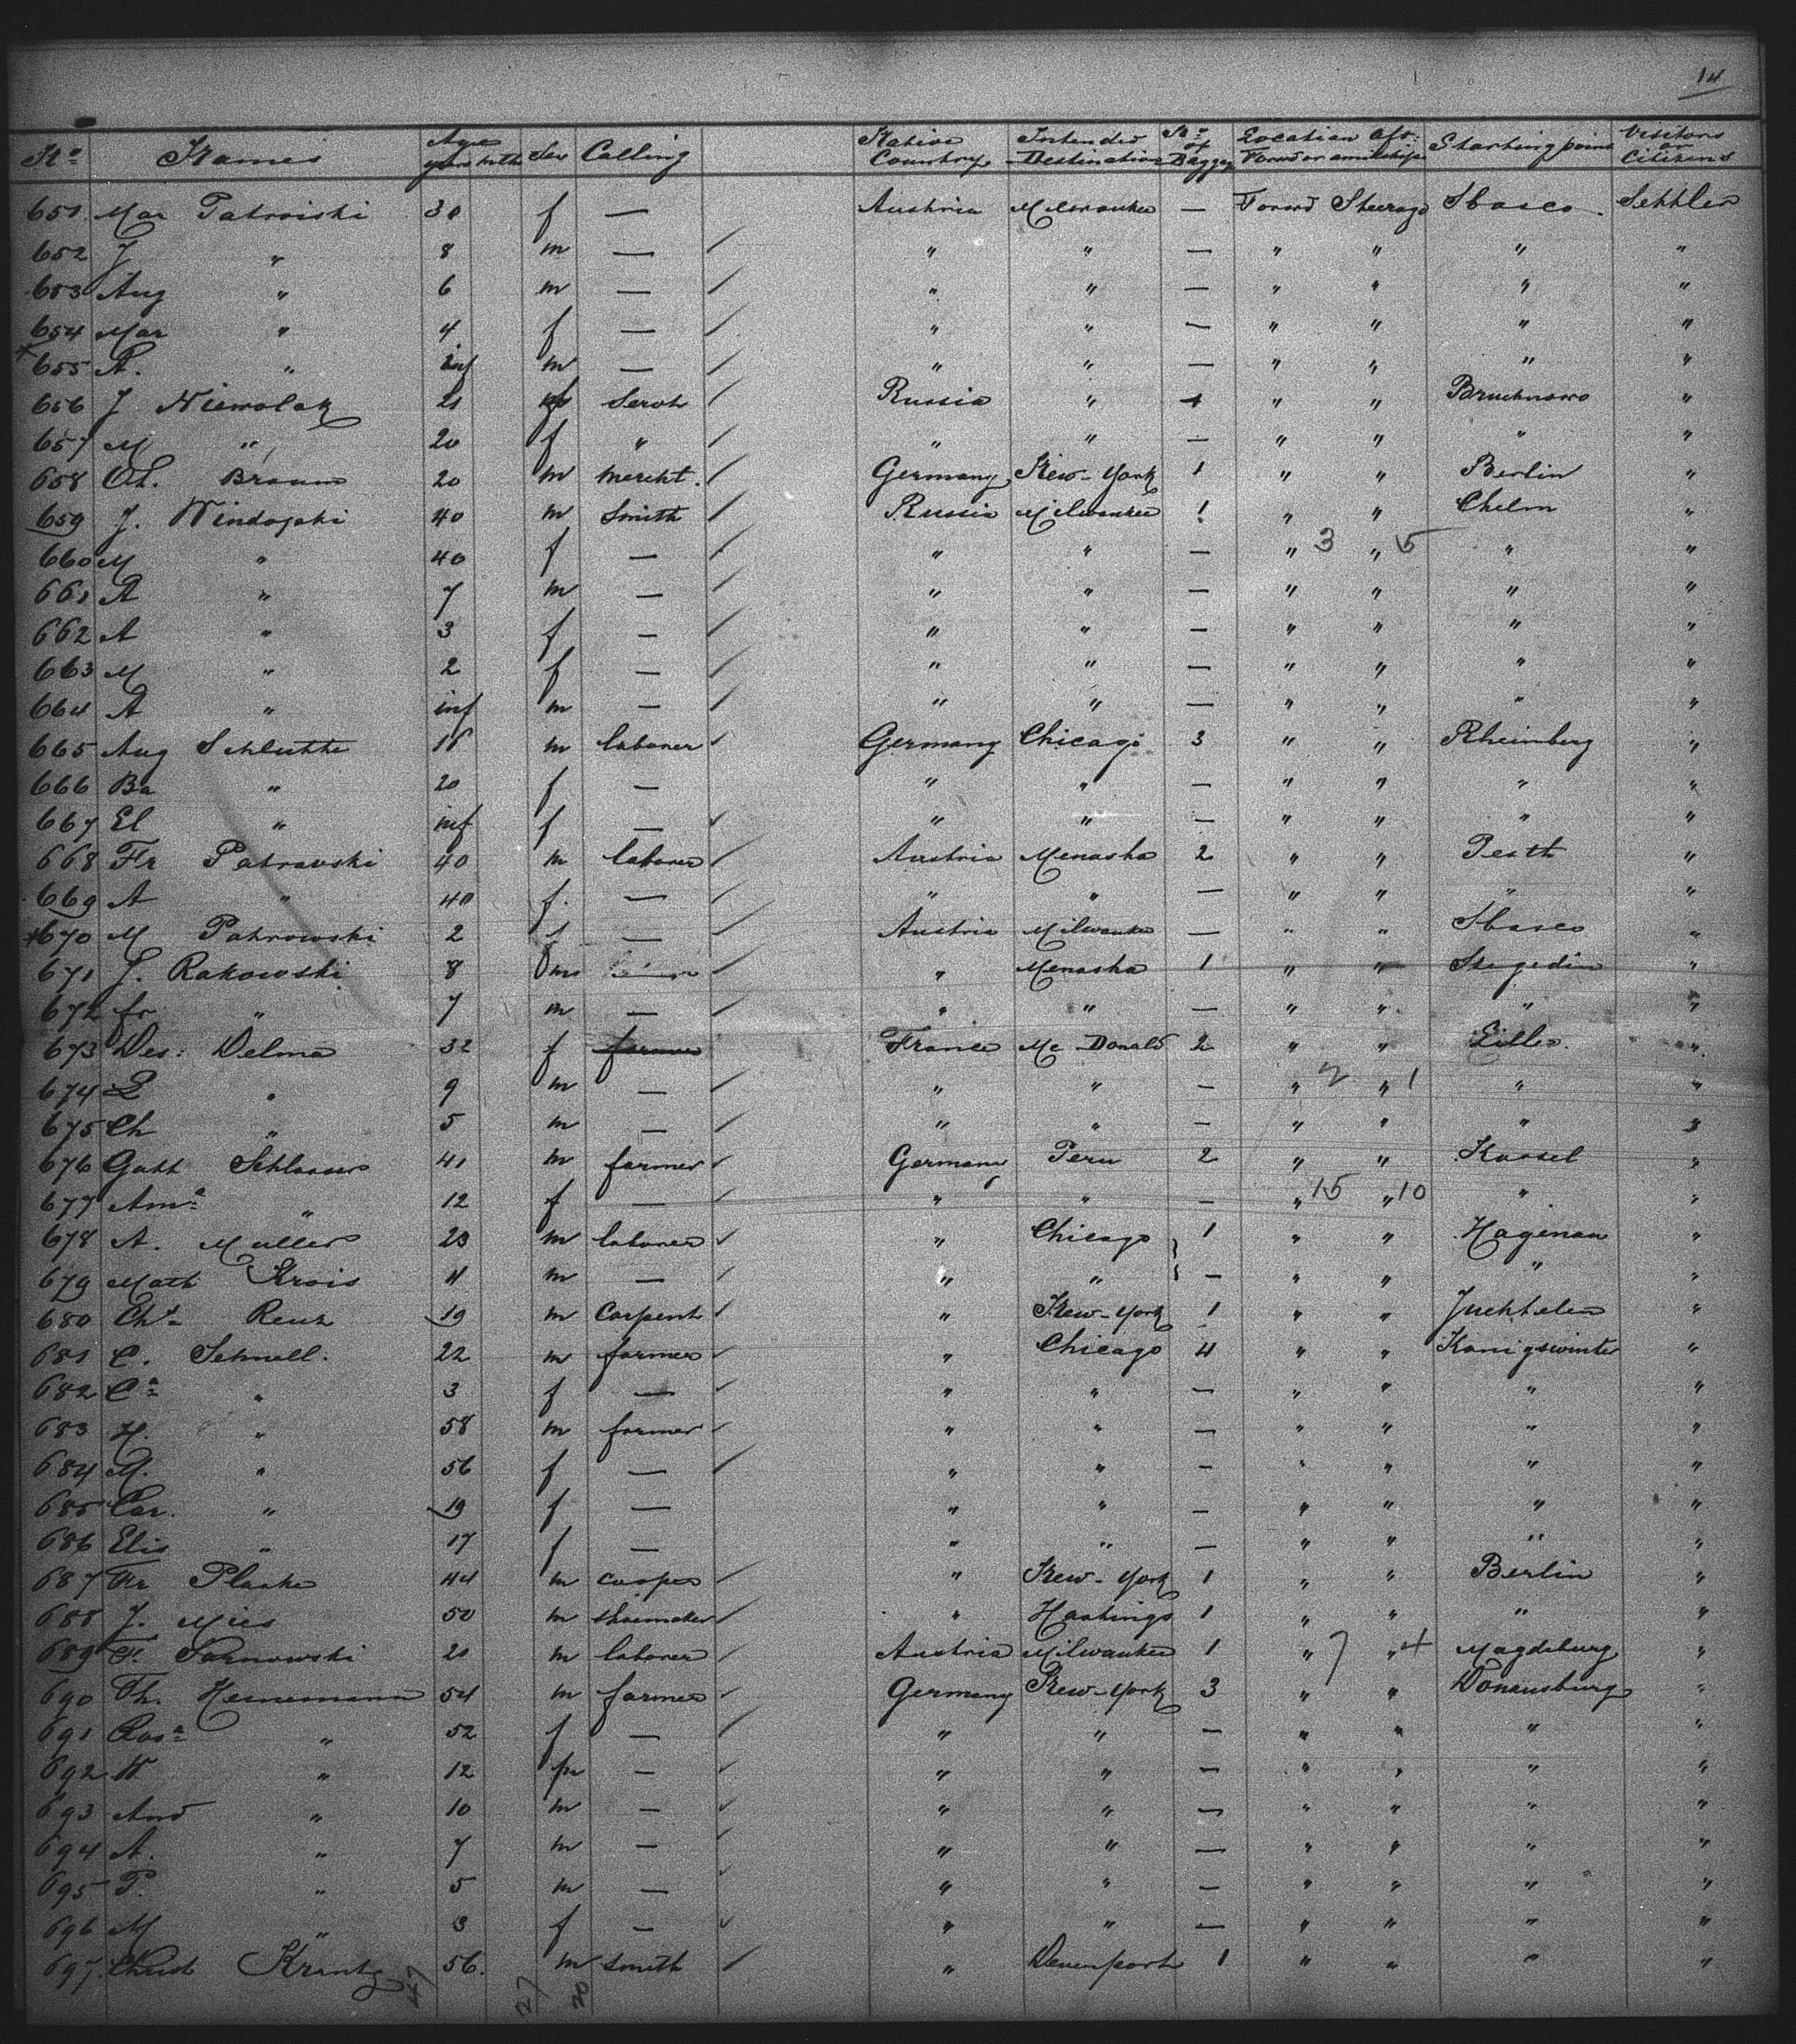 14
No Names Age years mth Sex Calling Native Country Intended Destination No of Baggage Location Aft: Forwd or amidships Starting point Visitors or Citizens
651 Mar Patroiski 30 f — Austria Milwaukee — Forwd Steerage Sbasco Settler
652 J " 8 m — " " — " " " "
653 Aug " 6 m — " " — " " " "
654 Mar " 4 f — " " — " " " "
655 A. " inf m — " " — " " " "
656 J Niewolak 21 Servt Russia " 1 " " Bruchnowo "
657 M " 20 f " " " — " " " "
658 Ch. Braun 20 m mercht. Germany New-York 1 " " Berlin "
659 J. Windogski 40 m Smith Russia Milwaukee 1 " " Chelm "
660 M " 40 f — " " — " 3 " 5 " "
661 A " 7 m — " " — " " " "
662 A " 3 f — " " — " " " "
663 M " 2 f — " " — " " " "
664 A " inf m — " " — " " " "
665 Aug Schlutte m laborer Germany Chicago 3 " " Rheinberg "
666 Ba " 20 f — " " — " " " "
667 El " inf f — " " — " " " "
668 Fr Patrowski 40 m laborer Austria Menasha 2 " " Pesth "
669 A " 40 f. — " " — " " " "
670 M Patrowski 2 f — Austria Milwaukee — " " Sbasco "
671 J. Rakowski 8 m " Menasha 1 " " Stegedin "
672 fr " 7 m — " " — " " " "
673 Des: Delma 32 f farmer France Mc Donald 2 " " Lille. "
674 L " 9 m — " " — " 2 " 1 " "
675 Ch " 5 m — " " — " " " "
676 Gott Schlosser 41 m farmer Germany Peru 2 " " Kassel "
677 Ama " 12 f — " " — " 15 " 10 " "
678 A. Muller 23 m laborer " Chicago 1 " " Hagenau "
679 Math Krois 11 m — " " — " " " "
680 Cht Renz 19 m Carpent " New-York 1 " " Juchtelen "
681 C. Schnell. 22 m farmer " Chicago 4 " " Konigswinter "
682 Ca " 3 f — " " — " " " "
683 H. " 58 m farmer " " — " " " "
684 M. " 56 f — " " — " " " "
685 Car. " 19 f — " " — " " " "
686 Elis " 17 f — " " — " " " "
687 Fr Plaake 44 m cooper " New-York 1 " " Berlin "
688 J. Mies 50 m shoemaker " Hastings 1 " " " "
689 F. Sarnowski 21 m laborer Austria Milwaukee 1 " 7 " 4 Magdeburg "
690 Th. Heinemann 54 m farmer Germany New-York 3 " " Donausburg "
691 Rosa " 52 f — " " — " " " "
692 W " 12 m — " " — " " " "
693 And " 10 m — " " — " " " "
694 A. " 7 m — " " — " " " "
695 P. " 5 m — " " — " " " "
696 M " 3 f — " " — " " " "
697. Christ Krantz 56. m smith " Davenport 1 " " " "
47 27 20